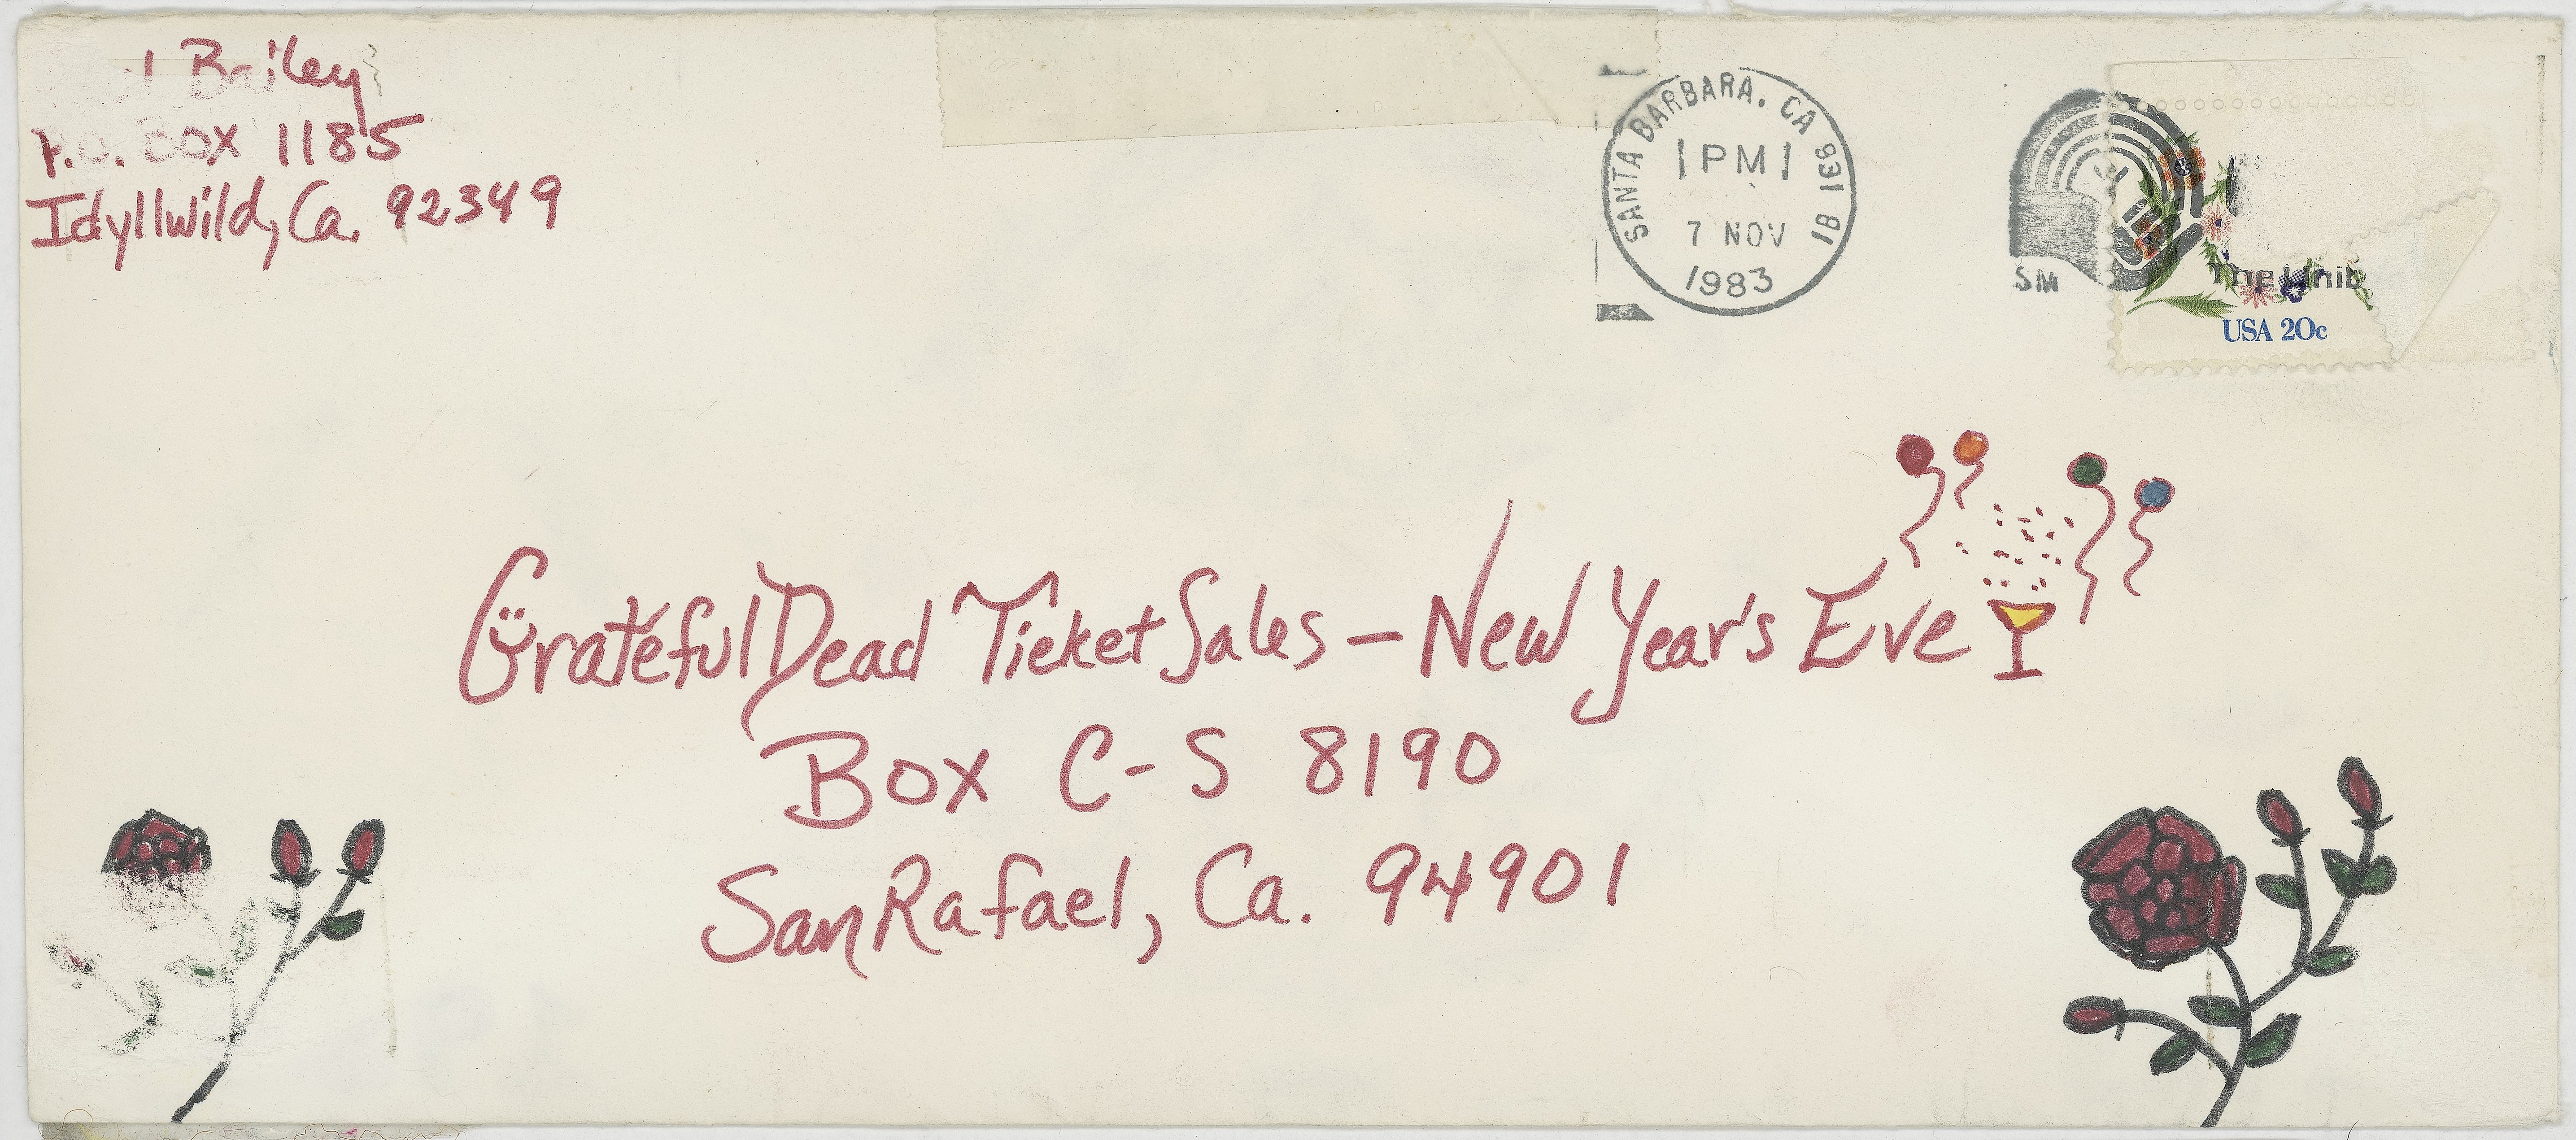 Bailey
P.O. Box 1185
Idyllwild, Ca. 92349
SANTA BARBARA, CA 931 B1
PM
7 NOV
1983
SM
USA 20c
Grateful Dead Ticket Sales – New Year's Eve
Box C-S 8190
San Rafael, Ca. 94901